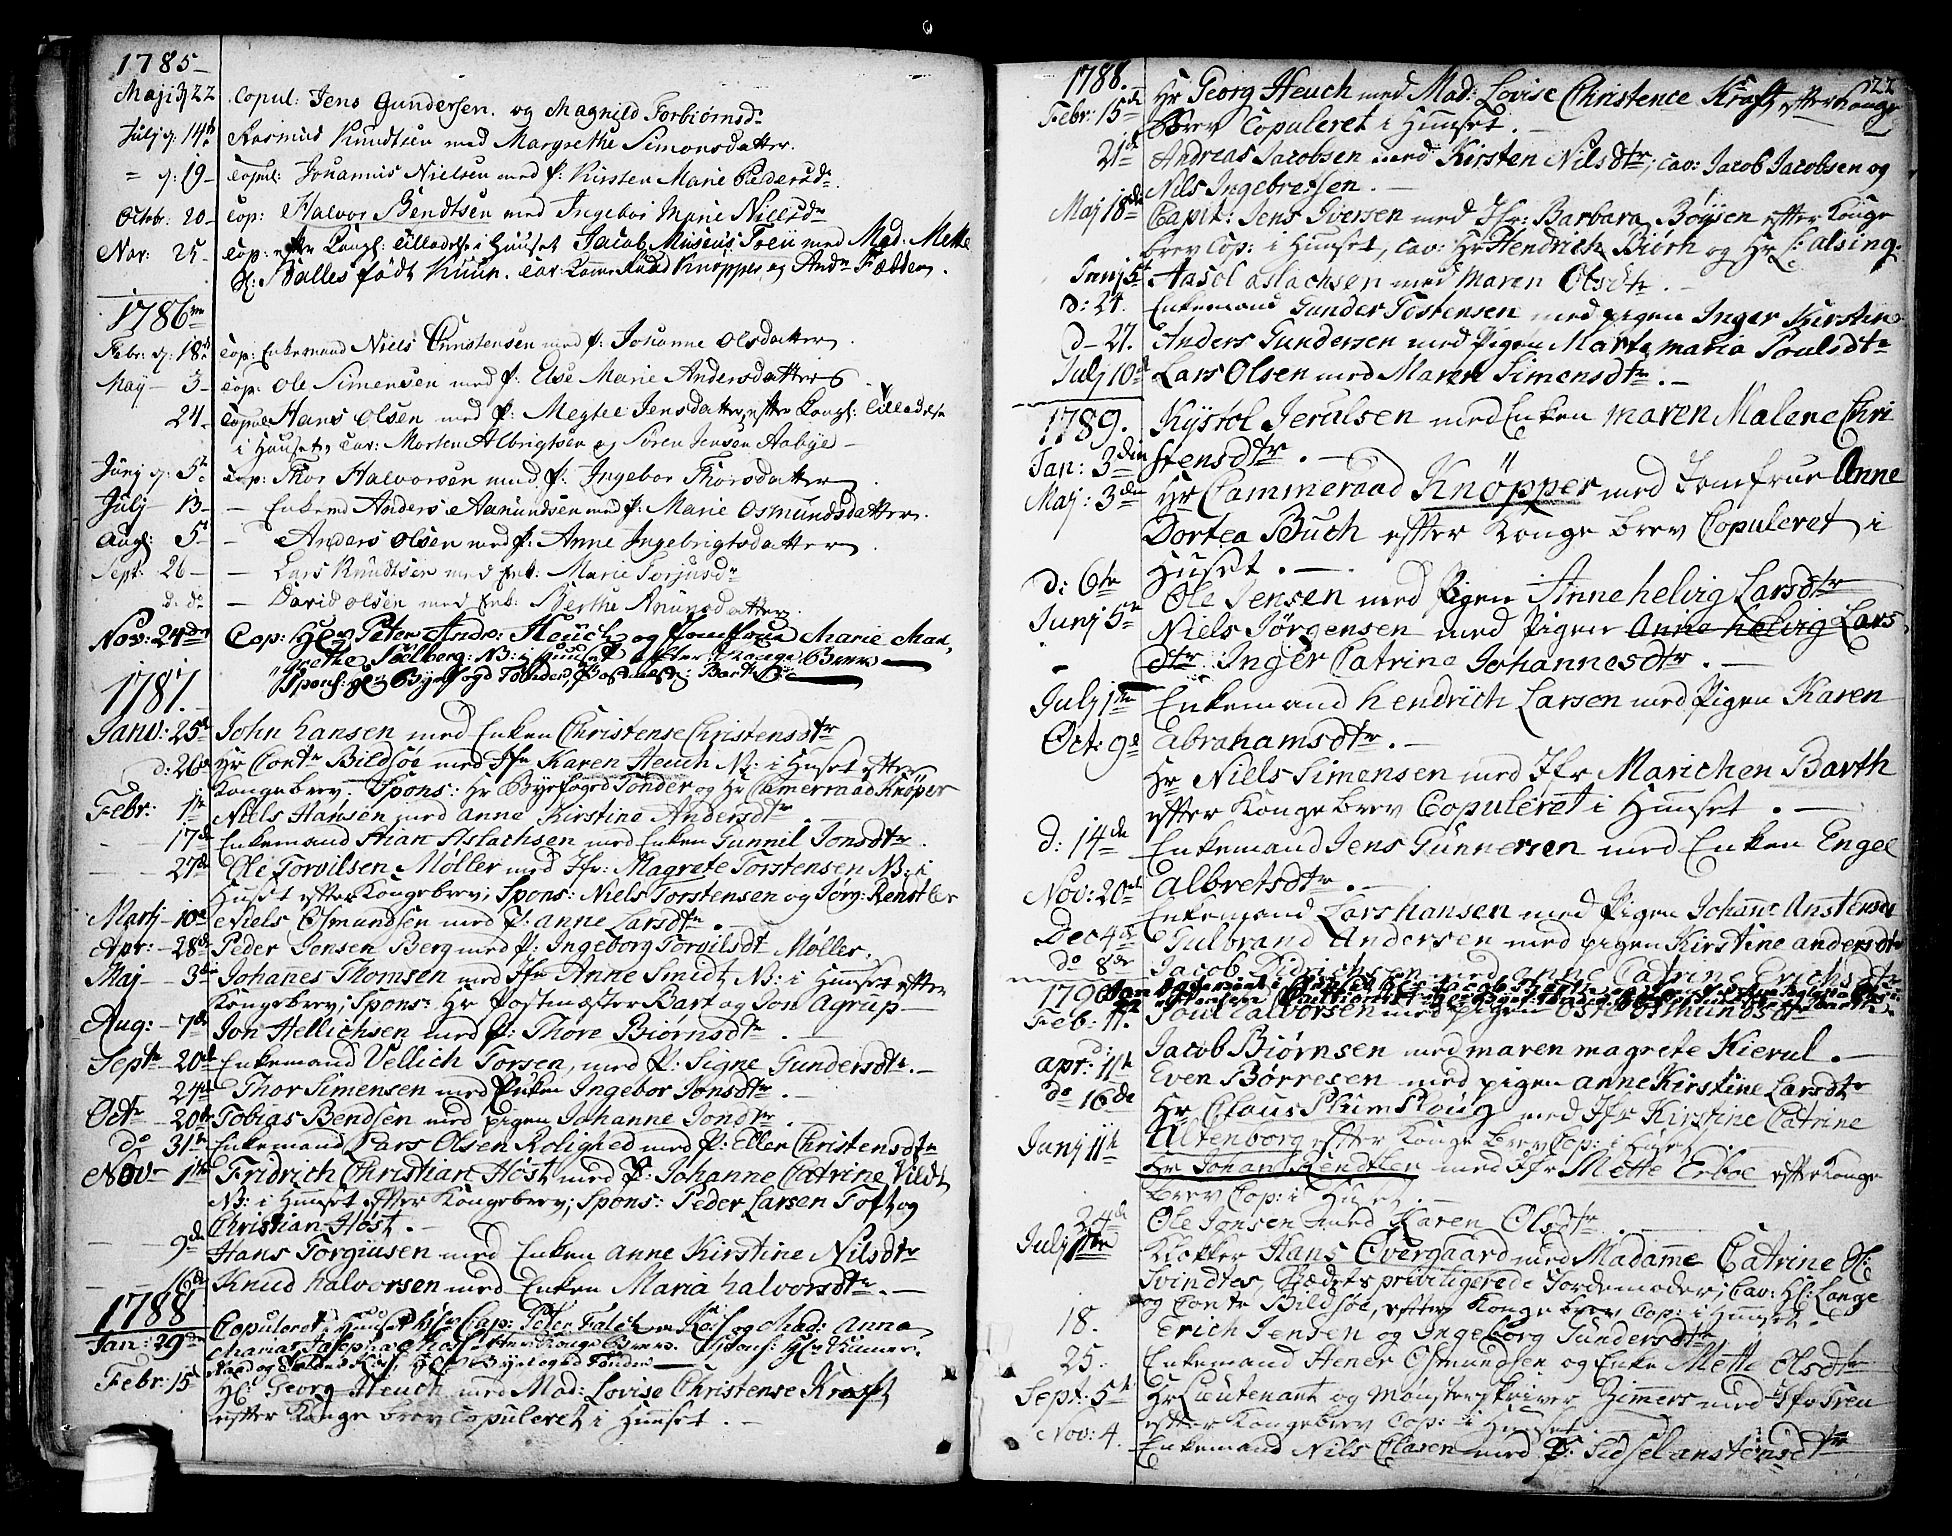 1785
Maji 22 Copul: Jens Gundersen. og Magnild Torbiørnsd
Julj 14 Rasmus Knudtsen med Margrethe Simonsdatter.
19 Copul: Johannis Nielsen med P. Kirsten Marie Pedersd
Octobr: 20 Cop: Halvor Bendtsen med Ingebor Marie Nielsd
Nov: 25 Cop: efter Kongl: tilladelse i Huuset Jacob Museus Treu med Mad: Mette
Balles født Kuun. Cav: Knøpper og And: Fædder.
1786
Febr: 18 Cop: Enkemand Niels Christensen med P. Johanne Olsdatter.
May 3 Cop: Ole Simensen med P. Else Marie Andersdatter
24 Copul: Hans Olsen med P: Megtele Jensdatter, efter Kongl: Tilladelse
i Huuset, Cav: Morten Albrigtsen og Søren Jensen Aabye
Junj 5 Cop: Thor Halvorsen med P. Ingebor Thorsdatter.
Julj 13 Enkemd Anders Aamundsen med P. Marie Osmundsdatter.
Augl: 5 Anders Olsen med P. Anne Ingebrigtsdatter.
Sept: 26 Lars Knudtsen med Enk: Marie Torjusd
d: do David Olsen med Enk: Berthe Knunsdatter.
Nov: 24 Cop: Hr Peter Andr: Heuch og Jomfrue Marie Mar,
grethe Sølberg: NB: i Huuset efter Konge Brev
Spons: Byefogd Tønder, Postmest: Bart
1787.
Janv: 25 John Hansen med Enken Christense Christensdtr
d: 26 Hr Contr Bildsøe med Jfr Karen Heuch N: i Huset efter
Kongebrev. Spons: Hr Byefoged Tønder og Hr Camerraad Knøper
Febr: 1 Niels Hansen med Anne Kirstine Andersdtr.
17 Enkemand Aslachsen med Enken Gunnil Jonsdtr.
27 Ole Torvilsen Møller med Jfr: Magrete Torstensen N: i
Huset efter Kongebrev; Spons: Niels Torstensen og Jørg: Renstler
Martj 10 Niels Osmundsen med P: Anne Larsdtr.
Apr: 28 Peder Jensen Berg med P: Ingeborg Torvilsdt Møller.
Maj 3 Johanes Thomsen med Jfr Anne Smidt N: i Huuset efter
Kongebrev; Spons: Hr Postmæster Bart og Jon Agrup
Aug: 7 Jon Hellichsen med P: Thore Biørnsdtr.
Septr 20 Enkemand Vellich Torsen, med P: Signe Gundersdtr.
24 Thor Simensen med Enken Ingebor Jonsdtr.
Octr 20 Tobias Bendsen med pigen Johanne Jondtr.
do 31 Enkemand Lars Olsen Rolighed med P: Ellen Christensdtr
Nov 1 Fridrich Christian Høst med P: Johanne Catrine Vildt
N: i Huuset efter Kongebrev; Spons: Peder Larsen Toft og
Christian Høst.
9de Hans Torgiusen med Enken Anne Kirstine Nilsdtr
16 Knud Halvorsen med Enken Maria Halvorsdtr.
1788
Jan: 29 Copuleret i Huuset Hr Cap: Peter Falch Køif og Mad: Anna
Maria Josepha efter Konge Brev. Spons: Hr Kamer.
Raad og Hr Byefoged Tønder
Febr: 15 Hr Georg Heuch med Mad: Lovise Christense Kraft
efter Konge brev Copuleret i Huuset.
22
1788.
Febr: 15de Hr Georg Heuch med Mad: Lovise Christence Kraft, efter Konge
Brev Copuleret i Huuset.
21de Andreas Jacobsen med Kirsten Nilsdtr; Cav: Jacob Jacobsen og
Nils Ingebretsen.
Maj 18de Capit: Jens Iversen med Jfr: Barbara Bøysen efter Konge
brev Cop: i Huuset, Cav: Hr Hendrich Biørn og Hr C: Alsing.
Junj 5 Aasol Aslachsen med Maren Olsdtr.
d: 24. Enkemand Gunder Tostensen med pigen Inger Kirstine
d 27. Anders Gundersen med Pigen Marte Maria Poulsdtr
Julj 10 Lars Olsen med Maren Simensdtr.
1789. Kystol Jerulsen med Enken Maren Malene Chri
Jan: 3 stensdtr.
Maj: 3de Hr Cammeraad Knöpper med Jomfrue Anne
Dortea Buch efter Konge brev Copuleret i
Huset.
d: 6te Ole Jensen med Pigen Anne Helvig Larsdtr
Junj 5te Niels Jørgensen med Pigen Anne Helvig Lars
dtr Inger Catrine Johannesdtr.
Julj 1te Enkemand Hendrich Larsen med Pigen Karen
Oct: 9d Abrahamsdtr.
Hr Niels Simensen med Jfr Marichen Barth
efter Konge brev Copuleret i Huuset.
d: 14de Enkemand Jens Gunnersen med Enken Engel
Nov: 20de Albretsdtr.
Enkemand Lars Hansen med Pigen Johanne Anstensd
Dec 4de Gulbrand Andersen med pigen Kirstine Andersdtr
do 8de Jacob Didrichsen med Anne Catrine Erichsdtr
1790
Feb: 11. Poul Calvorsen med pigen Osmundsdtr
Jacob Biørnsen med Maren Magrete Kierul.
apr: 11te Even Børresen med pigen Anne Kirstine Larsdtr
do 16de Hr Claus Plum Ploug med Jfr Kirstine Catrine
Altenborg efter Konge brev Cop: i Huset
Junj 11te Hr Johan Rendtler med Jfr Mette Erboe efter Konge
brev Cop: i Huset.
24de Ole Jonsen med Karen Olsdtr.
Julj 1te Klokker Hans Overgaard med Madame Catrine Sl:
Svindtes, Stædets priviligerede Jordemoder; Cav: Hr: Lange
og Contr Bildsøe, efter Konge brev Cop: i Huuset.
18. Erich Jensen og Ingeborg Gundersdtr
25. Enkemand Hener Osmundsen og Enke Mette Olsdtr
Sept: 5t Hr Lieutenant og Mønsterskriver Zimers med Jfr Treu
efter Kongebrev Cop: i Huuset.
Nov: 4. Enkemand Nils Clasen med P: Sidsel Anstensdtr